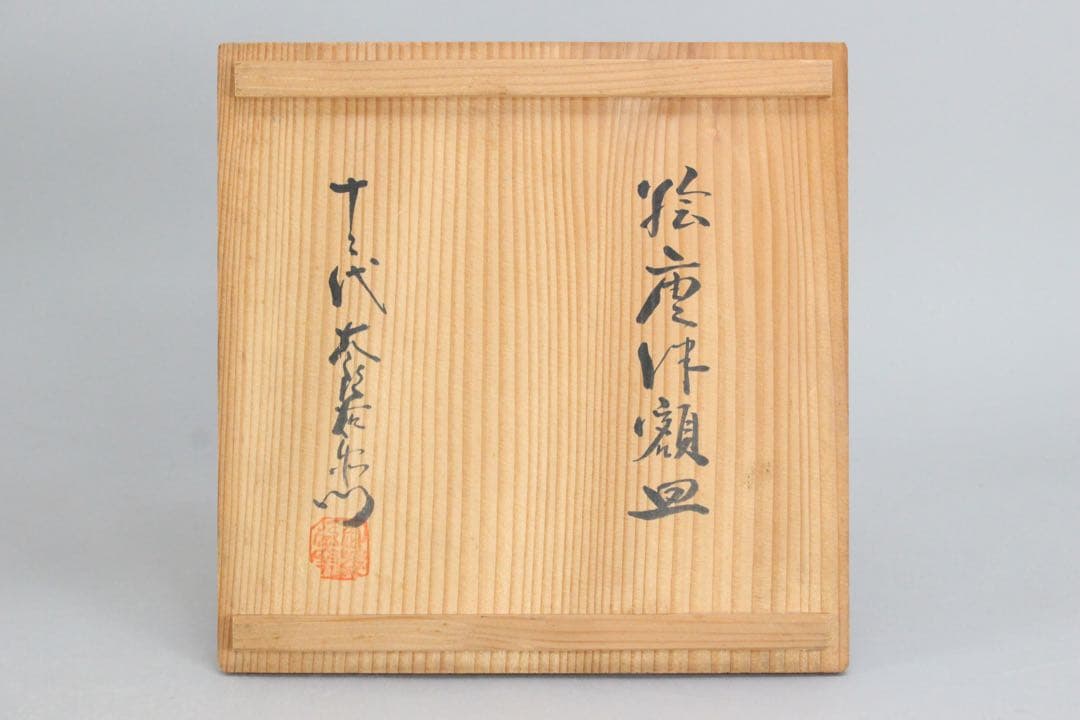 絵唐津額皿
十二代 太郎右衛門